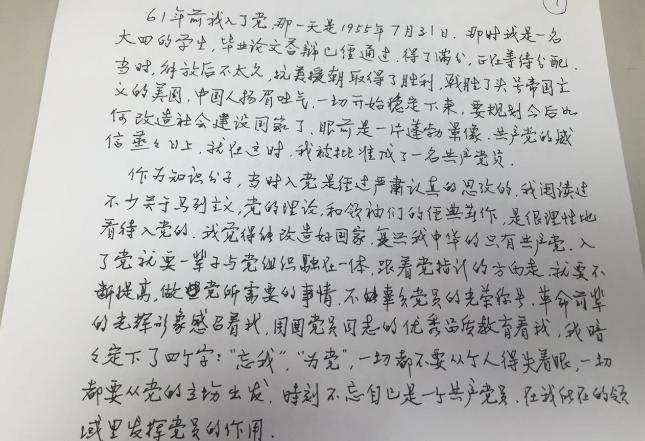 1
61年前我入了党,那一天是1955年7月31日.那时我是一名
大四的学生,毕业论文答辩已经通过,得了满分,正在等待分配.
当时,解放后不太久,抗美援朝取得了胜利,战胜了头号帝国主
义的美国,中国人扬眉吐气,一切开始稳定下来,要规划今后如
何改造社会建设国家了,眼前是一片蓬勃景像.共产党的威
信蒸々日上,就在这时,我被批准成了一名共产党员.
作为知识分子,当时入党是经过严肃认真的思考的,我阅读过
不少关于马列主义,党的理论,和领袖们的经典著作,是很理性地
看待入党的.我觉得能改造好国家,复兴我中华的只有共产党.入
了党就要一辈子与党组织融在一体,跟着党指引的方向走,就要不
断提高,做些党所需要的事情.不能辜负党员的光荣称号,革命前辈
的光辉形象感召着我,周围党员同志的优秀品质教育着我,我暗
々定下了四个字:"忘我","为党",一切都不要从个人得失着眼,一切
都要从党的立场出发,时刻不忘自己是一个共产党员.在我所在的领
域里发挥党员的作用.